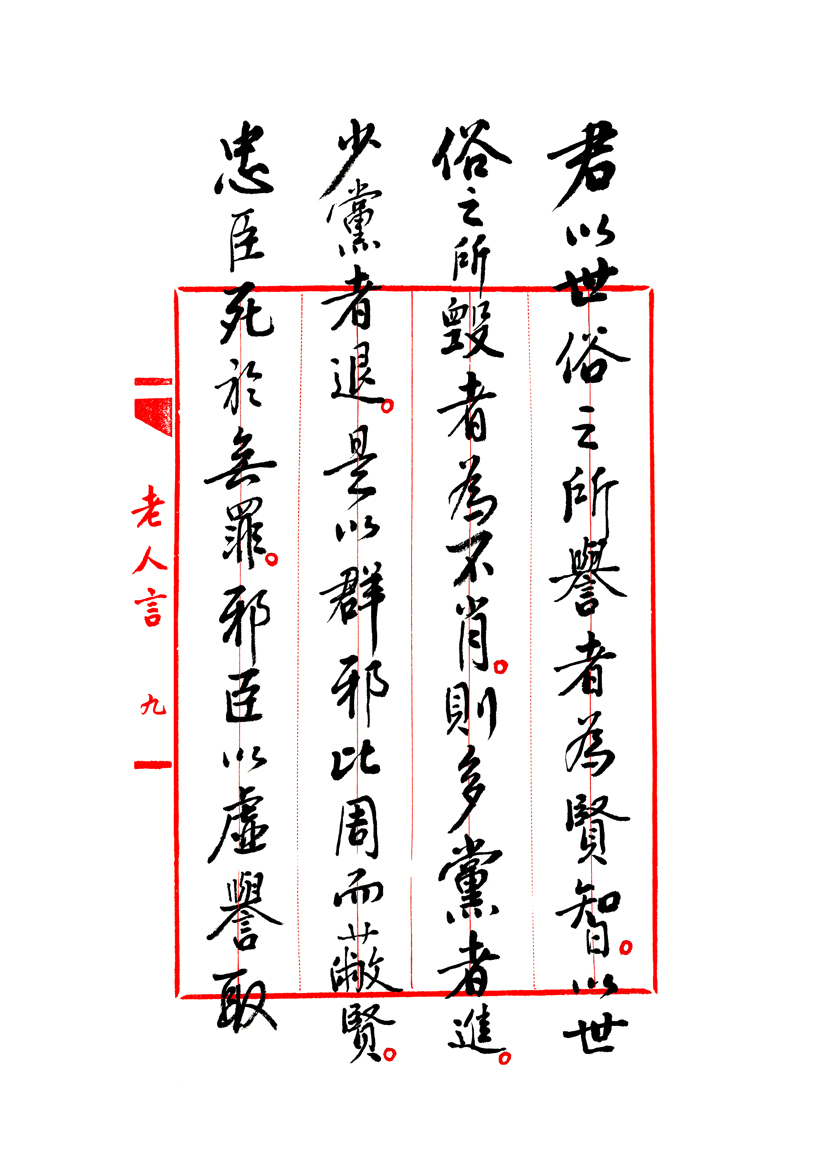 君以世俗之所譽者為賢智。以世
俗之所毀者為不肖。則多黨者進。
少黨者退。是以群邪比周而蔽賢。
忠臣死於無罪。邪臣以虛譽取
老人言 九